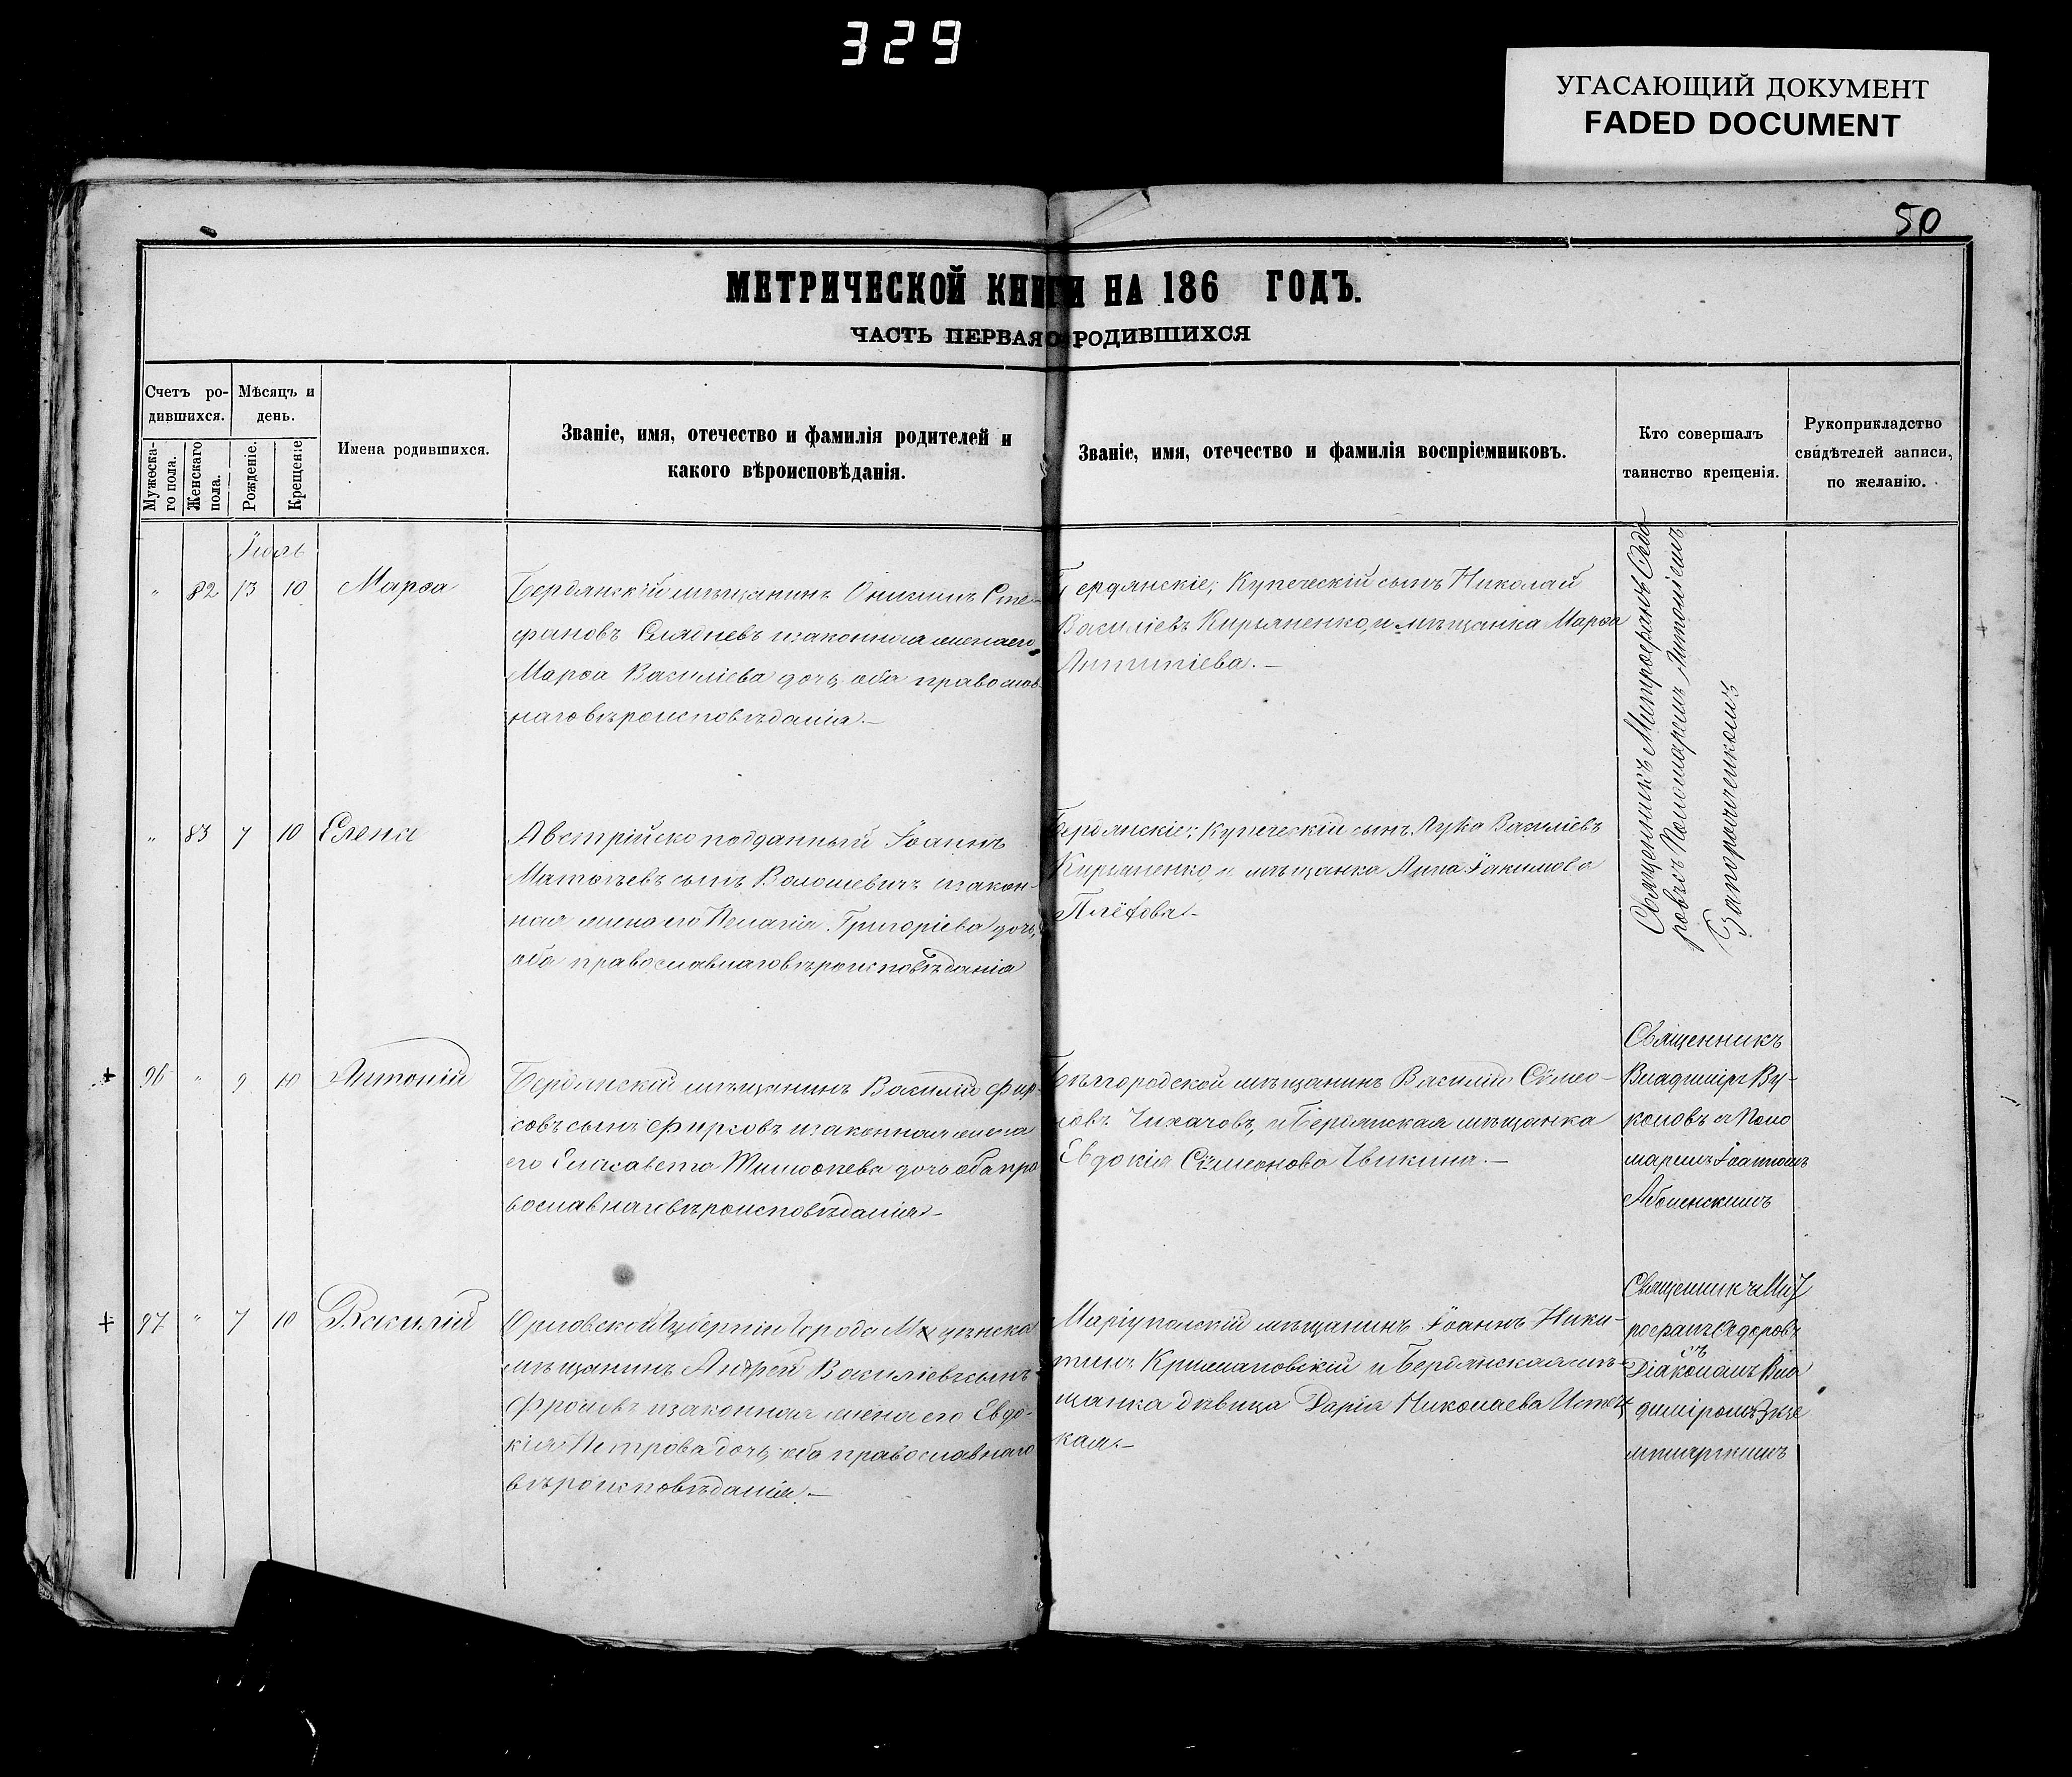 329
УГАСАЮЩИЙ ДОКУМЕНТ
FADED DOCUMENT
50
МЕТРИЧЕСКОЙ КНИГИ НА 186 ГОДЪ.
ЧАСТЬ ПЕРВАЯ О РОДИВШИХСЯ
Счетъ ро-
дившихся.
Мѣсяцъ и
день.
Мужеска-
го пола.
Женскаго
пола.
Рожденіе.
Крещеніе
Имена родившихся.
Званіе, имя, отечество и фамилія родителей и
какого вѣроисповѣданія.
Званіе, имя, отечество и фамилія воспріемниковъ.
Кто совершалъ
таинство крещенія.
Рукоприкладство
свидѣтелей записи,
по желанію.
Іюль
" 82 13 10 Марѳа
Бердянскій мѣщанинъ Онисимъ Сте-
фановъ изаконная жена его
Марѳа Василіева дочь, оба православ-
наго вѣроисповѣданія.—
Бердянскіе; Купеческій сынъ Николай
Василіевъ Кирьяненко, и мѣщанка Марѳа
Антипіева.—
Священникъ Митрофанъ Ѳедо
ровъ съ Пономаремъ Антоніемъ
Запорожченкомъ
" 83 7 10 Елена
Австрійско подданный Іоаннъ
Матѳѣевъ сынъ Волошевичъ изакон-
ная жена его Пелагія Григоріева дочь,
оба православнаго вѣроисповѣданія
Бердянскіе; Купеческій сынъ Лука Василіевъ
Кирьяненко и мѣщанка Анна Іакимова
+ 96 " 9 10 Антоній
Бердянскій мѣщанинъ Василій Фир-
совъ сынъ Фирсовъ изаконная жена
его Елисавета Тимоѳеева дочь оба пра
вославнаго вѣроисповѣданія.—
Бѣлгородской мѣщанинъ Василій Сѵмео-
новъ Чихачовъ, и Бердянская мѣщанка
Евдокія Сѵмеонова.—
Священникъ
Владиміръ Ву-
коловъ съ Поно
маремъ Іоанномъ
+ 97 " 7 10 Василій
Орловской Губерніи Города Мценска
мѣщанинъ Андрей Василіевъ сынъ
Фроловъ изаконная жена его Евдо-
кія Петрова дочь, оба православнаго
вѣроисповѣданія.—
Маріупольскій мѣщанинъ Іоаннъ Ники-
тинъ и Бердянская мѣ-
щанка дѣвица Дарія Николаева
кая.—
Священникъ Мит
рофанъ Ѳедоровъ
съ
Діакономъ Вла
диміромъ